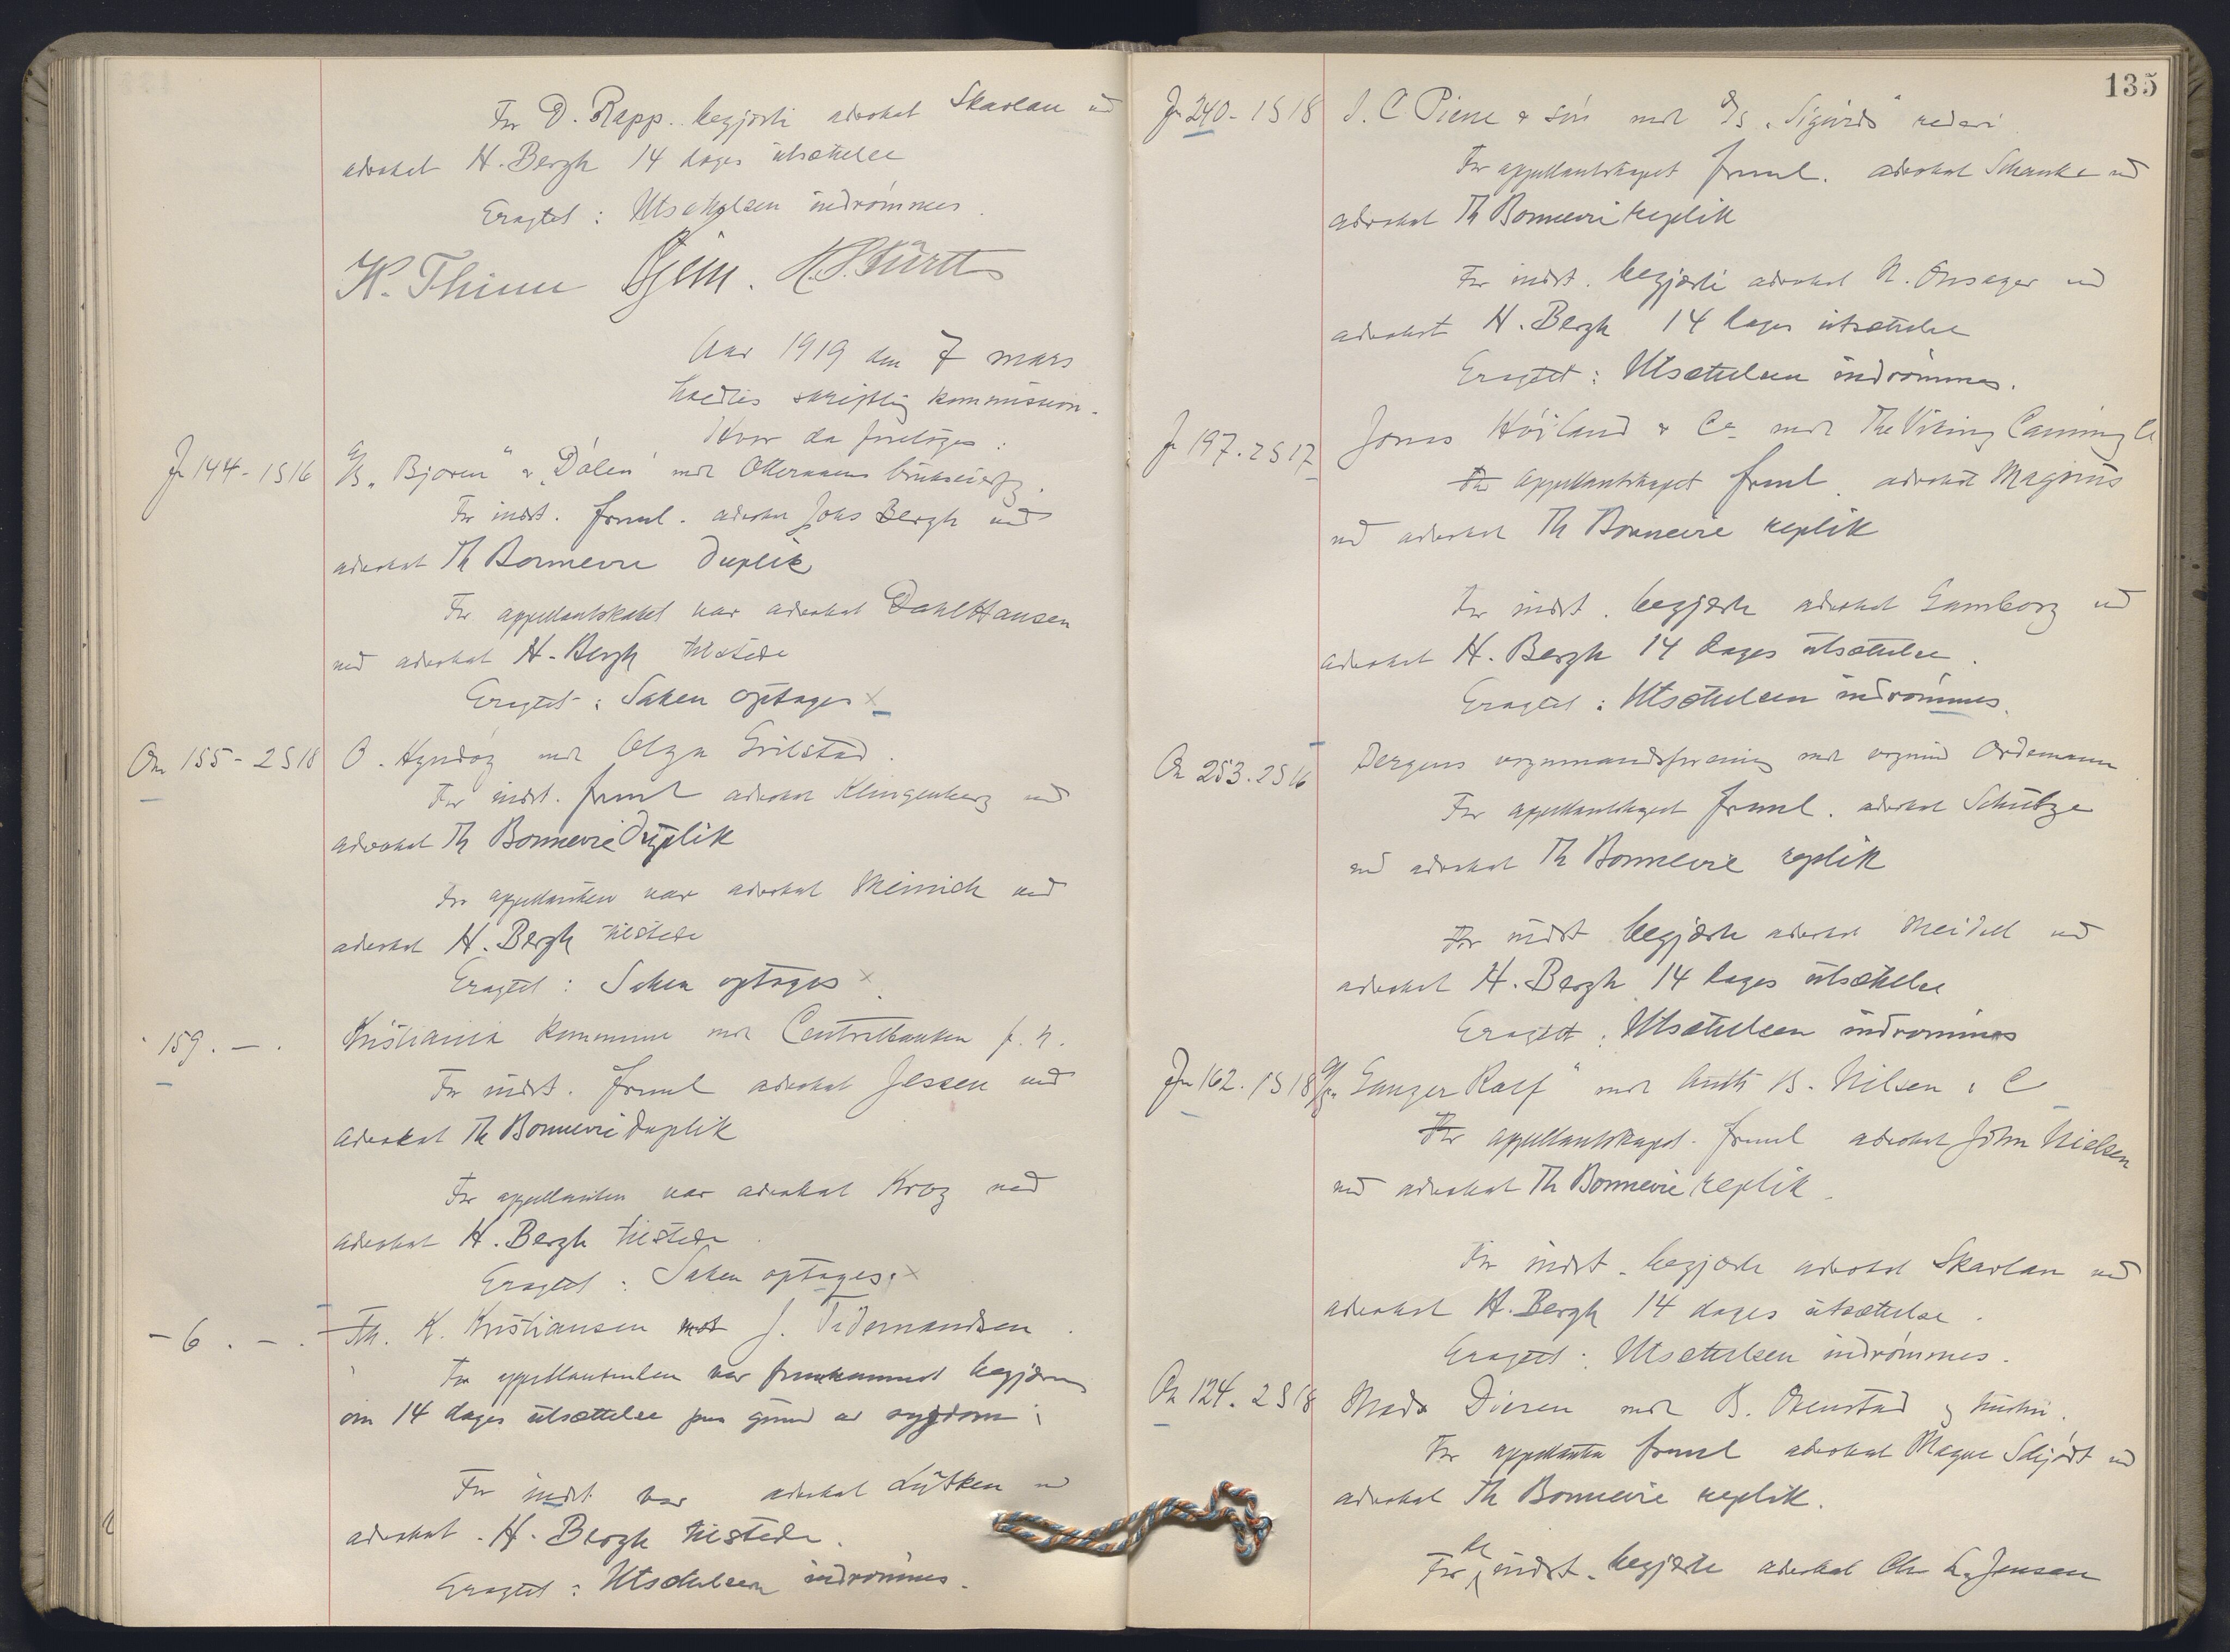 For D. Rapp. begjærte advokat Skavlan ved
advokat H. Bergh 14 dages utsættelse
Eragtet: Utsættelsen indrømmes.
K. Thinn
Aar 1919 den 7 mars
holdtes skriftlig kommission.
Hvor da foretoges:
Jr 144 - 1S16
A/S „Bjoren" & „Dølen" mot Otteraaens brukseierf.
For indst. freml. advokat Johs Bergh ved
advokat Th Bonnevie Duplik
For appellantskabet var advokat Dahl Hansen
ved advokat H. Bergh tilstede
Eragtet: Saken optages ×
On 155 - 2S18
O. Hyndøg mot Olga Grilstad.
For indst. freml advokat Klingenberg ved
advokat Th Bonnevie Duplik
For appellanten var advokat Meinich ved
advokat H. Bergh tilstede
Eragtet: Saken optages ×
159. — .
Kristiania kommune mot Centralbanken f. N.
For indst. freml advokat Jessen ved
advokat Th Bonnevie Duplik
For appellanten var advokat Krog ved
advokat H. Bergh tilstede.
Eragtet: Saken optages. ×
— 6. — .
Th. K. Kristiansen mot J. Tidemandsen.
For appellantinden var fremkommet begjæring
om 14 dages utsættelse paa grund av sygdom;
For indst. var advokat Lütken ved
advokat H. Bergh tilstede.
Eragtet: Utsættelsen indrømmes.
135
Jr 240 - 1S18
I. C Piene & søn mot D/S „Sigurds" rederi.
For appellantskapet freml. advokat Schanke ved
advokat Th Bonnevie replik
For indst. begjærte advokat N. Onsager ved
advokat H. Bergh 14 dages utsættelse
Eragtet: Utsættelsen indrømmes.
Jr 197. 2S17
Jonas Høiland & Co mot The Viking Canning Co
For appellantskapet freml. advokat Magnus
ved advokat Th Bonnevie replik
For indst. begjærte advokat Gamborg ved
advokat H. Bergh 14 dages utsættelse.
Eragtet: Utsættelsen indrømmes.
On 253. 2S16
Bergens vognmandsforening mot vognmd Ordemann
For appellantskapet freml. advokat Schütze
ved advokat Th Bonnevie replik
For indst. begjærte advokat Meidell ved
advokat H. Bergh 14 dages utsættelse
Eragtet: Utsættelsen indrømmes
Jr 162. 1S18
„Ganger Rolf" mot Anth B. Nilsen & C
For appellantskapet. freml advokat John Nielsen
ved advokat Th Bonnevie replik.
For indst. begjærte advokat Skavlan ved
advokat H. Bergh 14 dages utsættelse.
Eragtet: Utsættelsen indrømmes.
On 124. 2S18
Mads Diesen mot B. Ovenstad og hustru.
For appellanten freml advokat Magne Schjødt ved
advokat Th Bonnevie replik.
For de indst. begjærte advokat Chr L. Jensen